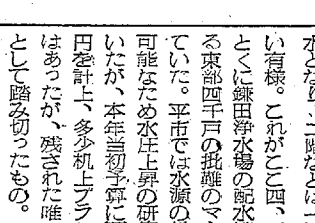 い有様。これがここ四、
とくに鎌田浄水場の配水
る東部四千戸の批難のマ
ていた。平市では水源の
可能なため水圧上昇の研
いたが、本年当初予算に
円を計上、多少机上プラ
はあったが、残された唯
として踏み切ったもの。